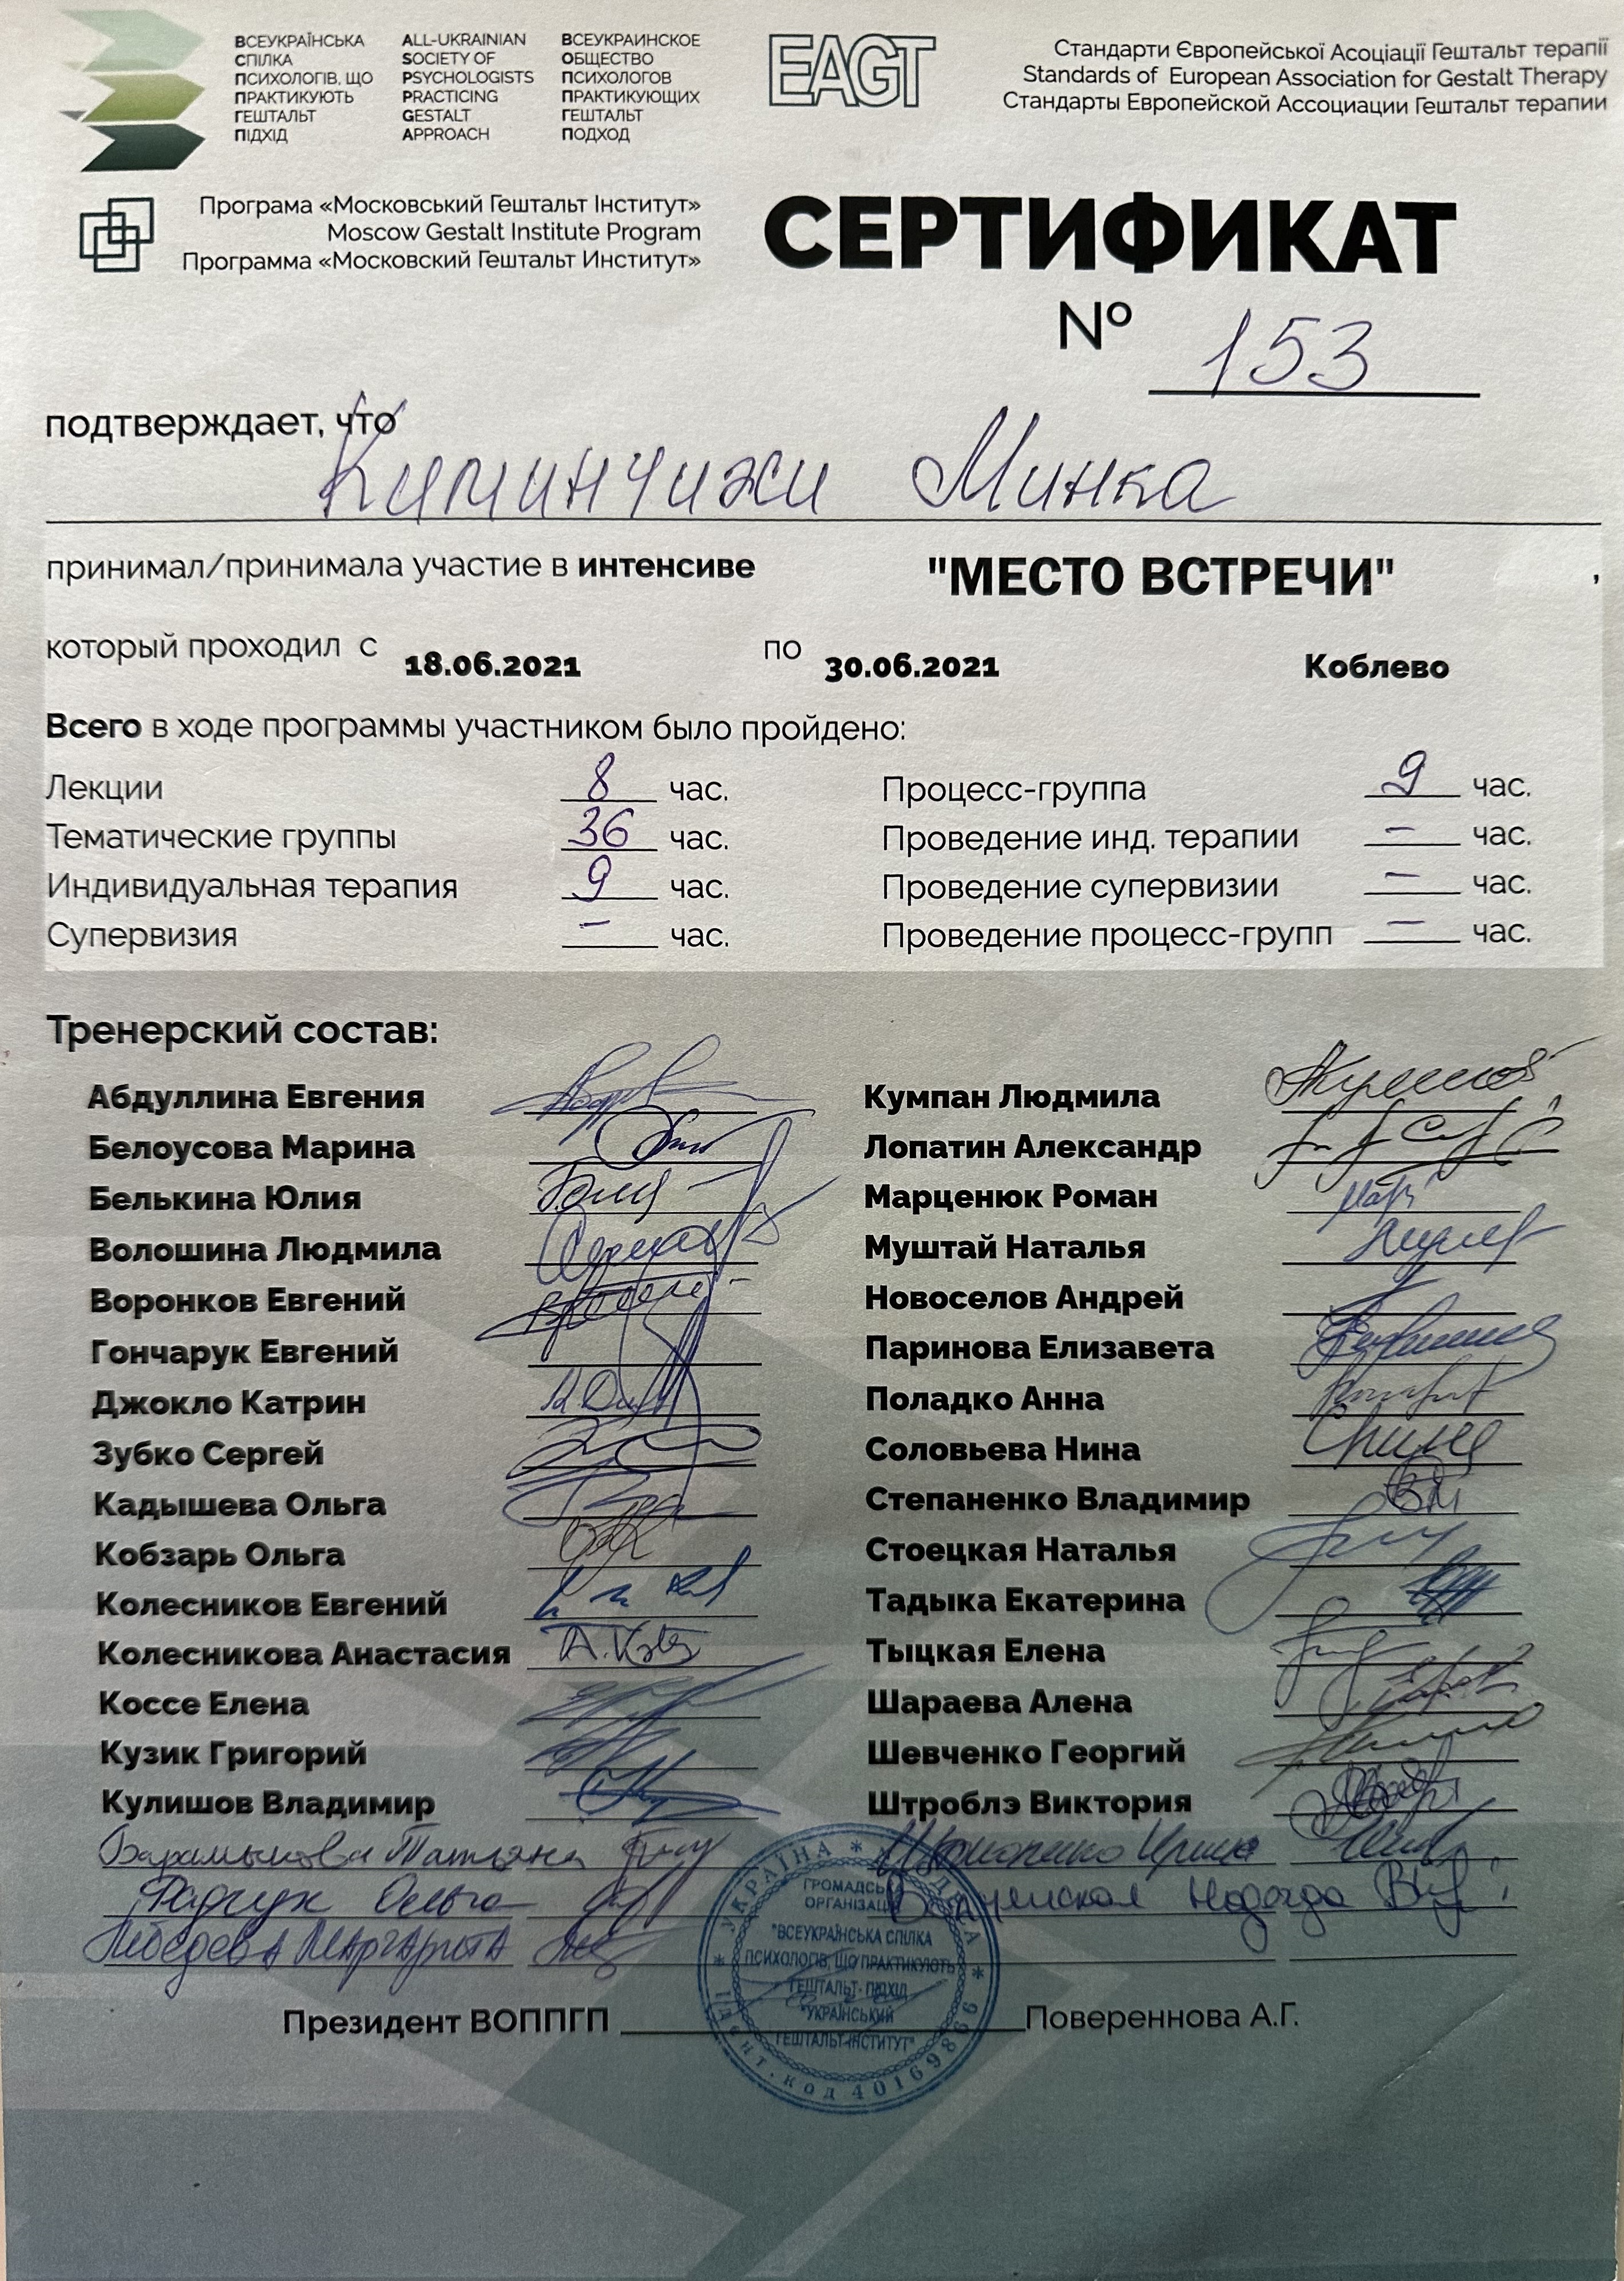 ВСЕУКРАЇНСЬКА
СПІЛКА
ПСИХОЛОГІВ, ЩО
ПРАКТИКУЮТЬ
ГЕШТАЛЬТ
ПІДХІД
ALL-UKRAINIAN
SOCIETY OF
PSYCHOLOGISTS
PRACTICING
GESTALT
APPROACH
ВСЕУКРАИНСКОЕ
ОБЩЕСТВО
ПСИХОЛОГОВ
ПРАКТИКУЮЩИХ
ГЕШТАЛЬТ
ПОДХОД
EAGT
Стандарти Європейської Асоціації Гештальт терапії
Standards of European Association for Gestalt Therapy
Стандарты Европейской Ассоциации Гештальт терапии
Програма «Московський Гештальт Інститут»
Moscow Gestalt Institute Program
Программа «Московский Гештальт Институт»
СЕРТИФИКАТ
№ 153
подтверждает, что
Киминчижи Минка
принимал/принимала участие в интенсиве "МЕСТО ВСТРЕЧИ" ,
который проходил с 18.06.2021 по 30.06.2021 Коблево
Всего в ходе программы участником было пройдено:
Лекции 8 час. Процесс-группа 9 час.
Тематические группы 36 час. Проведение инд. терапии – час.
Индивидуальная терапия 9 час. Проведение супервизии – час.
Супервизия – час. Проведение процесс-групп – час.
Тренерский состав:
Абдуллина Евгения Кумпан Людмила
Белоусова Марина Лопатин Александр
Белькина Юлия Марценюк Роман
Волошина Людмила Муштай Наталья
Воронков Евгений Новоселов Андрей
Гончарук Евгений Паринова Елизавета
Джокло Катрин Поладко Анна
Зубко Сергей Соловьева Нина
Кадышева Ольга Степаненко Владимир
Кобзарь Ольга Стоецкая Наталья
Колесников Евгений Тадыка Екатерина
Колесникова Анастасия Тыцкая Елена
Коссе Елена Шараева Алена
Кузик Григорий Шевченко Георгий
Кулишов Владимир Штроблэ Виктория
Татьяна Ирина
Радчук Ольга Надежда
Лебедева Маргарита
Президент ВОППГП Повереннова А.Г.
УКРАЇНА
ГРОМАДСЬКА
ОРГАНІЗАЦІЯ
"ВСЕУКРАЇНСЬКА СПІЛКА
ПСИХОЛОГІВ, ЩО ПРАКТИКУЮТЬ
ГЕШТАЛЬТ-ПІДХІД
"УКРАЇНСЬКИЙ
ГЕШТАЛЬТ-ІНСТИТУТ"
Ідент. код 40169866